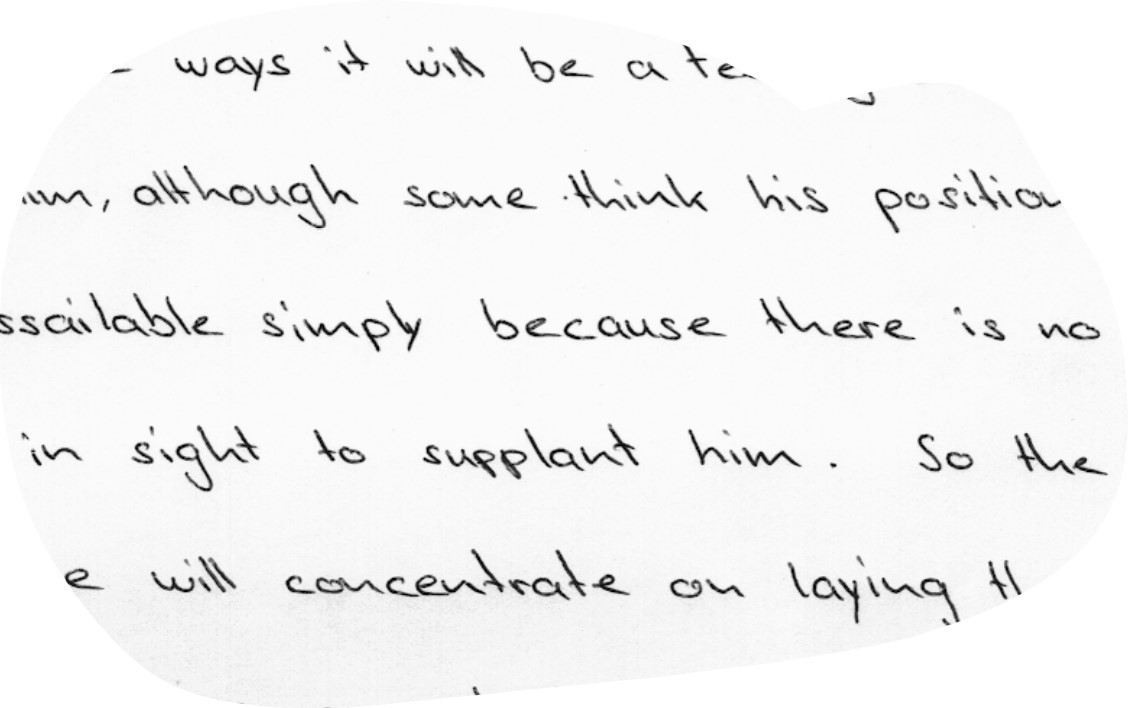 ways it will be a
although some think his
simply because there is no
in sight to supplant him. So the
will concentrate on laying